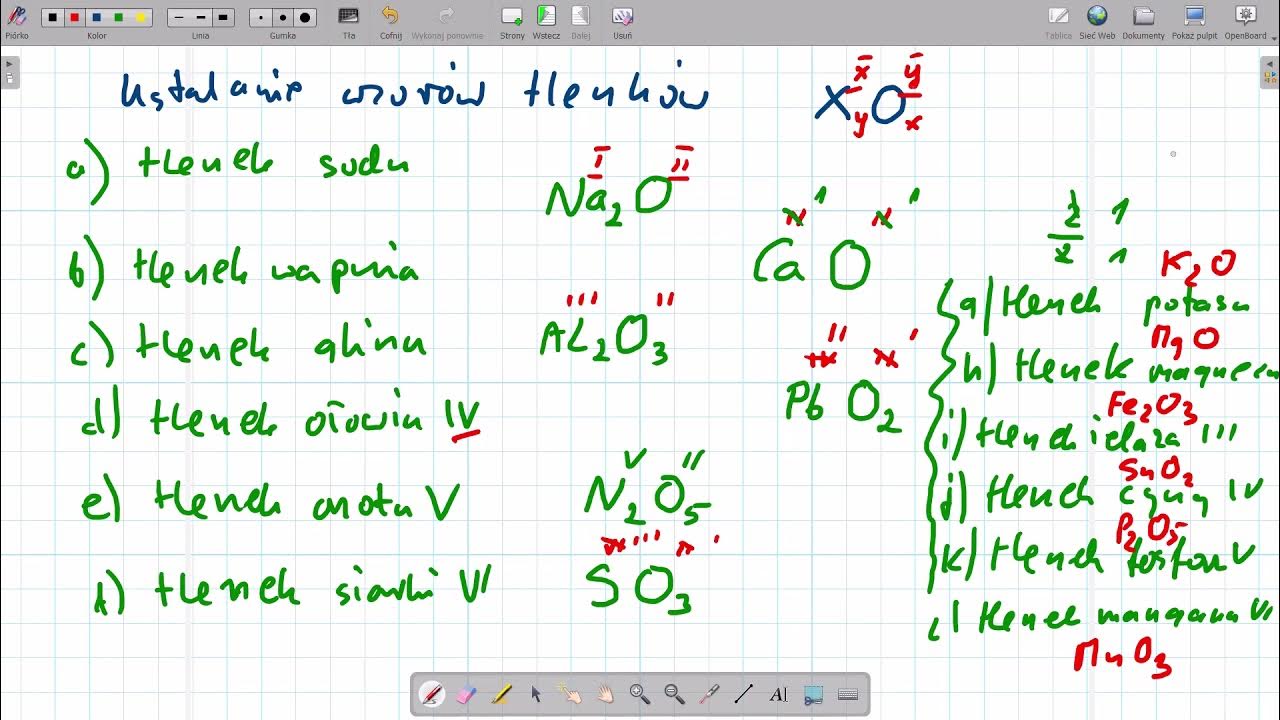 Piórko Kolor Linia Gumka Tło Cofnij Wykonaj ponownie Strony Wstecz Dalej Usuń Tablica Sieć Web Dokumenty Pokaż pulpit OpenBoard
Ustalanie wzorów tlenków
X O
x y
y x
a) tlenek sodu
I II
Na2O
b) tlenek wapnia
1 1
Ca O
2 1
2 1
c) tlenek glinu
III II
Al2O3
d) tlenek ołowiu IV
II I
Pb O2
e) tlenek azotu V
V II
N2O5
f) tlenek siarki VI
III I
S O3
K2O
g) tlenek potasu
MgO
h) tlenek magnezu
Fe2O3
i) tlenek żelaza III
SnO2
j) tlenek cyny IV
P2O5
k) tlenek fosforu V
l) tlenek manganu VI
MnO3
AI